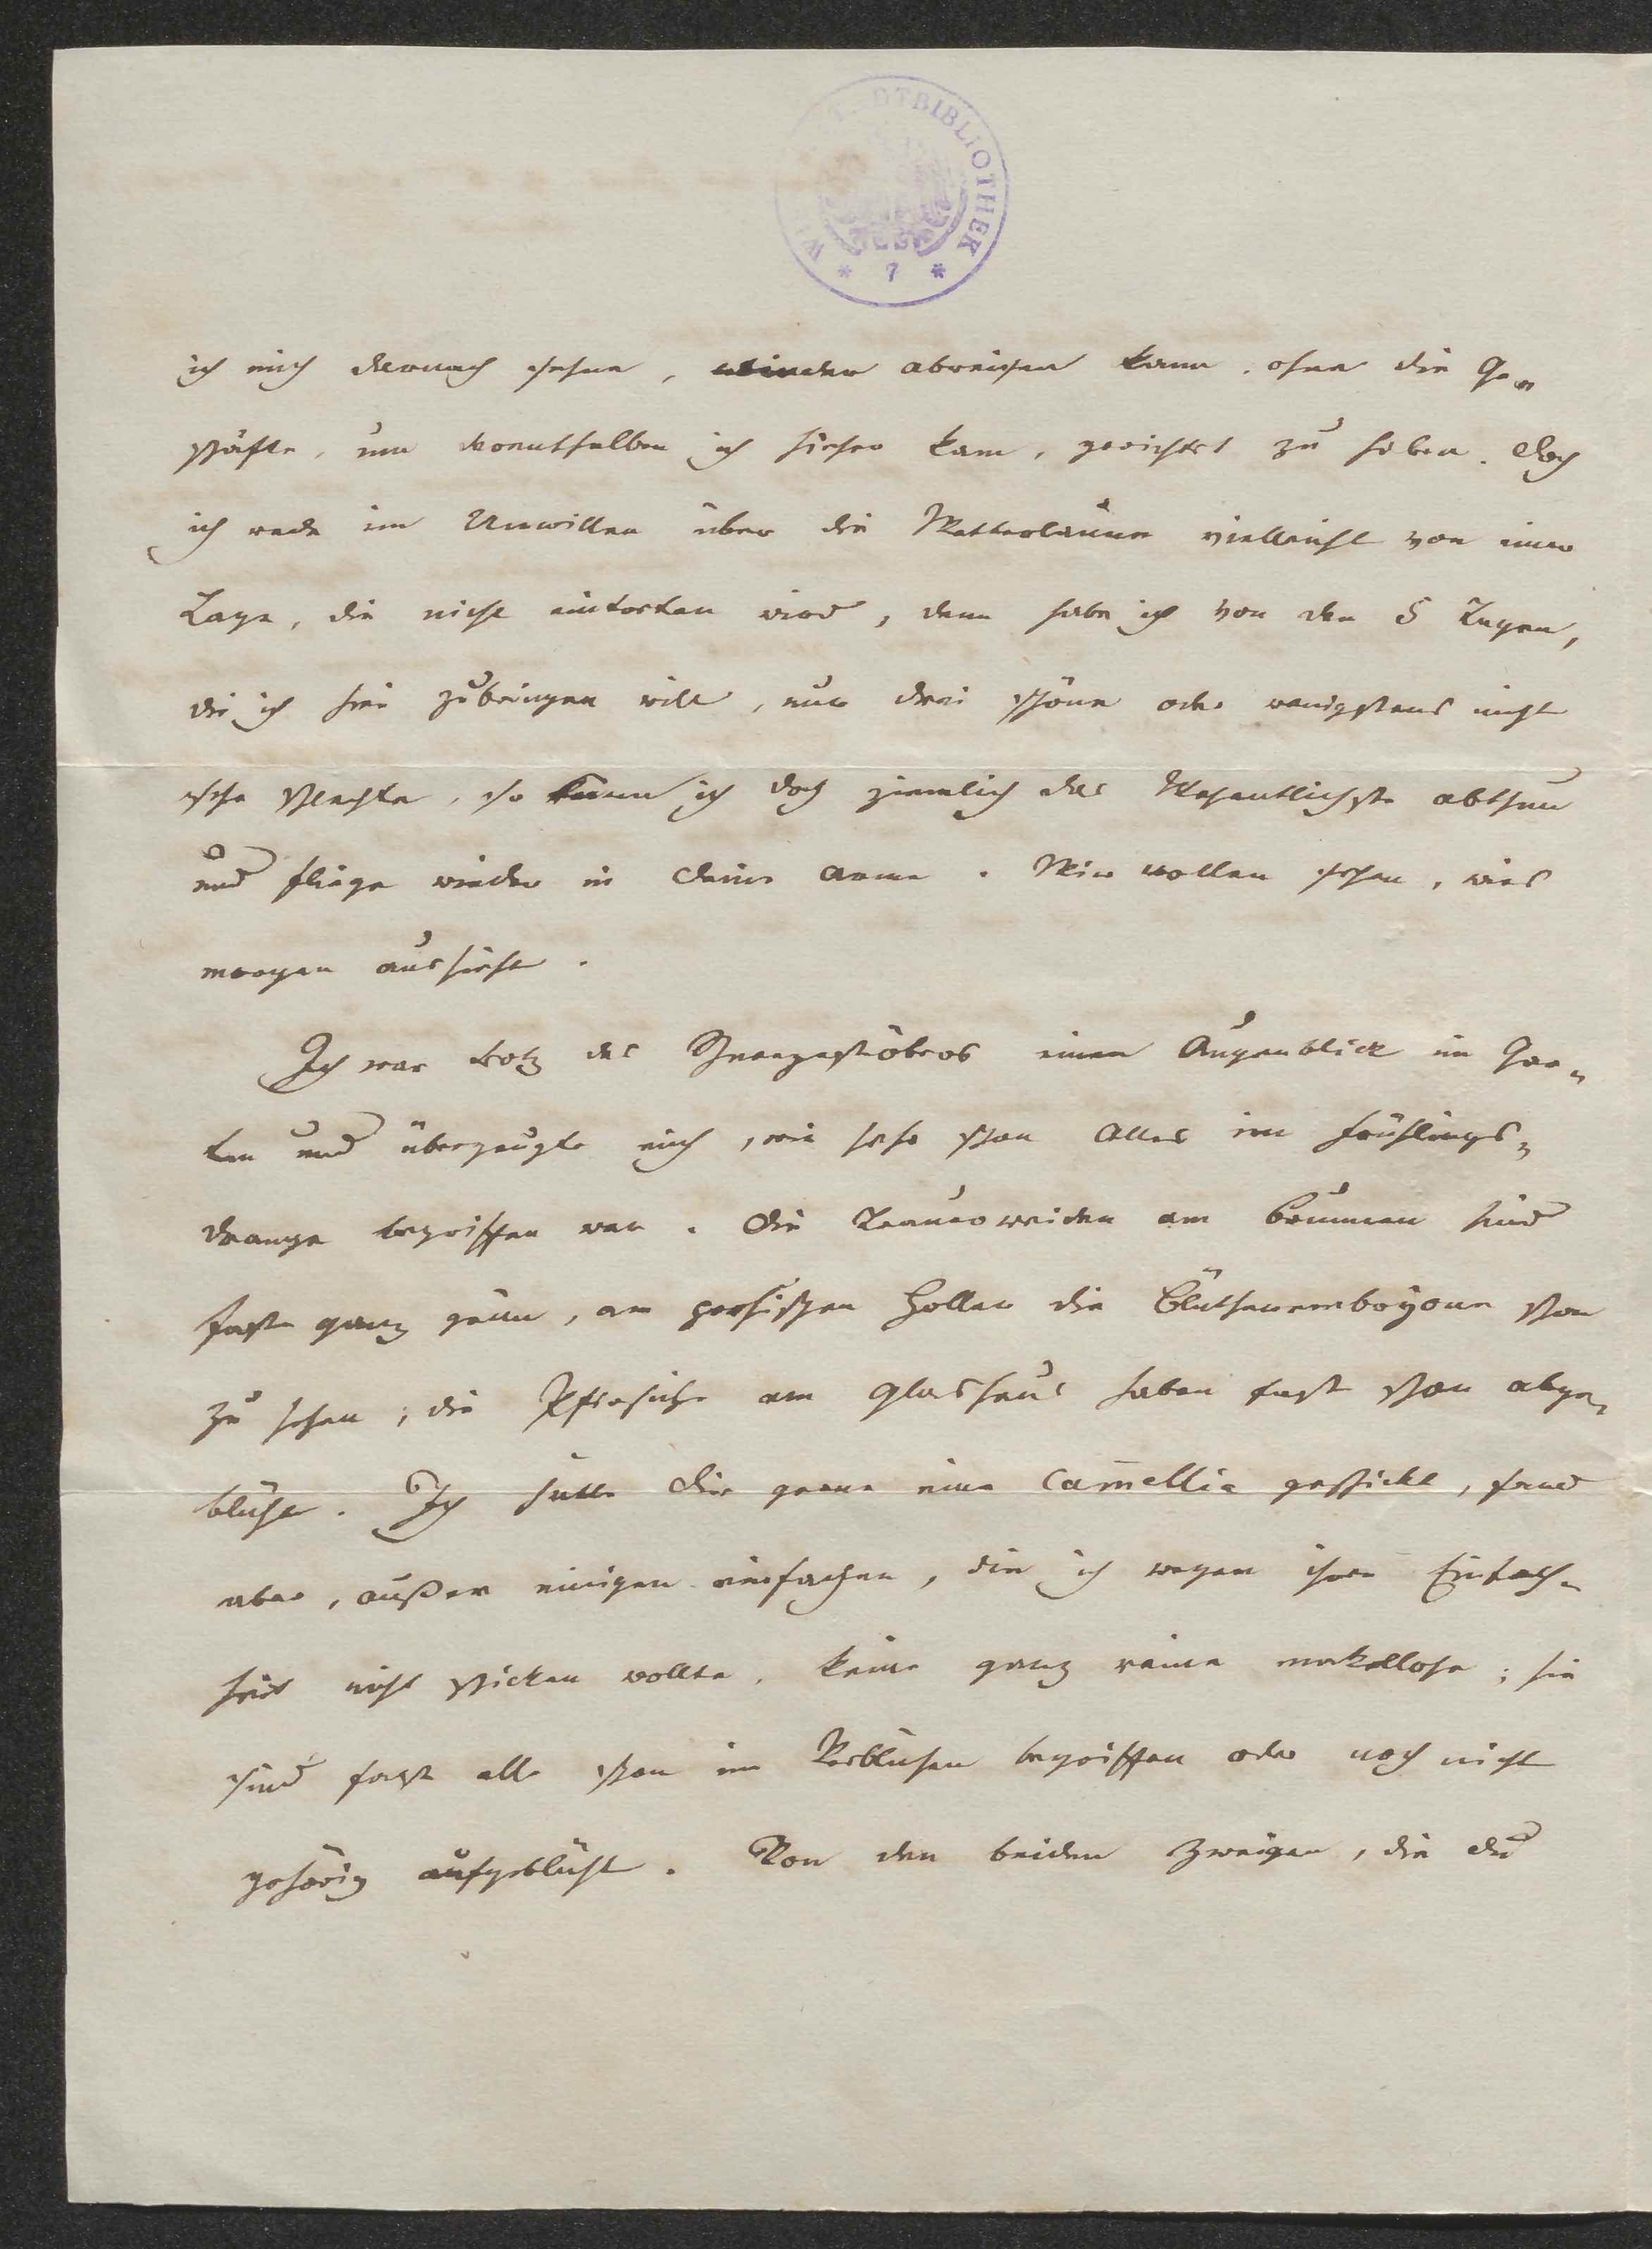 WIE TADTBIBLIOTHEK
* 7 *
ich mich darnach sehne, wieder abreisen kann, ohne die Ge-
schäfte, um derenthalben ich hieher kam, gerichtet zu haben. Doch
ich rede im Unwillen über die Wetterlaune vielleicht von einer
Lage, die nicht eintreten wird, denn habe ich von den 8 Tagen,
die ich hier zubringen will, nur drei schöne oder wenigstens nicht
sehr schlechte, so kann ich doch ziemlich das Wesentlichste abthun
und fliege wieder in deine Arme. Wir wollen sehen, wies
morgen aussieht.
Ich war trotz des Schneegestöbers einen Augenblick im Gar-
ten und überzeugte mich, wie sehr schon Alles im Frühlings-
drange begriffen war. Die Trauerweiden am Brunnen sind
fast ganz grün, am persischen Holler die Blüthenembryone schon
zu sehen; die Pfirsiche am Glashaus haben fast schon abge-
blüht. Ich hätte dir gerne eine Camellia geschickt, fand
aber, außer einigen einfachen, die ich wegen ihrer Einfach-
heit nicht schicken wollte, keine ganz reine makellose; sie
sind fast alle schon im Verblühen begriffen oder noch nicht
gehörig aufgeblüht. Von den beiden Zweigen, die du